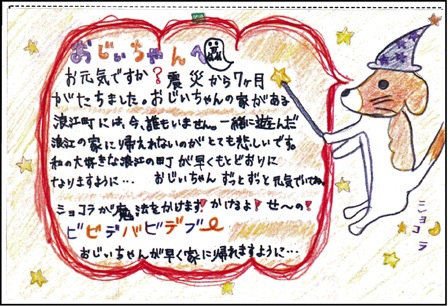 おじいちゃんへ
お元気ですか?震災から7ヶ月
がたちました。おじいちゃんの家がある
浪江町には、今、誰もいません。一緒に遊んだ
浪江の家に帰れないのがとても悲しいです。
私の大好きな浪江の町が早くもとどおりに
なりますように… おじいちゃんずっとずっと元気でいてね。
ショコラが魔法をかけます!かけるよ!せ〜の!
ビビデバビデブー
おじいちゃんが早く家に帰れますように…
ショコラ